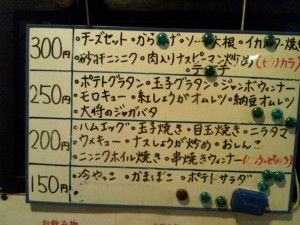 300円 ・チーズセット ・からげ・ソー 大根 ・イカ 焼
・砂肝ニンニク ・肉入りナスピーマン炒め(ピリカラ)
250円 ・ポテトグラタン ・玉子グラタン ・ジャンボウィンナー
・モロキュー ・紅しょうがオムレツ ・納豆オムレツ
・大将のジャガバタ
200円 ・ハムエッグ ・玉子焼き ・目玉焼き ・ニラタマ
・ウメキュー ・ナスしょうが炒め ・おしんこ
・ニンニクホイル焼き ・串焼きウィンナー
150円 ・冷やっこ ・かまぼこ ・ポテトサラダ
お飲み物